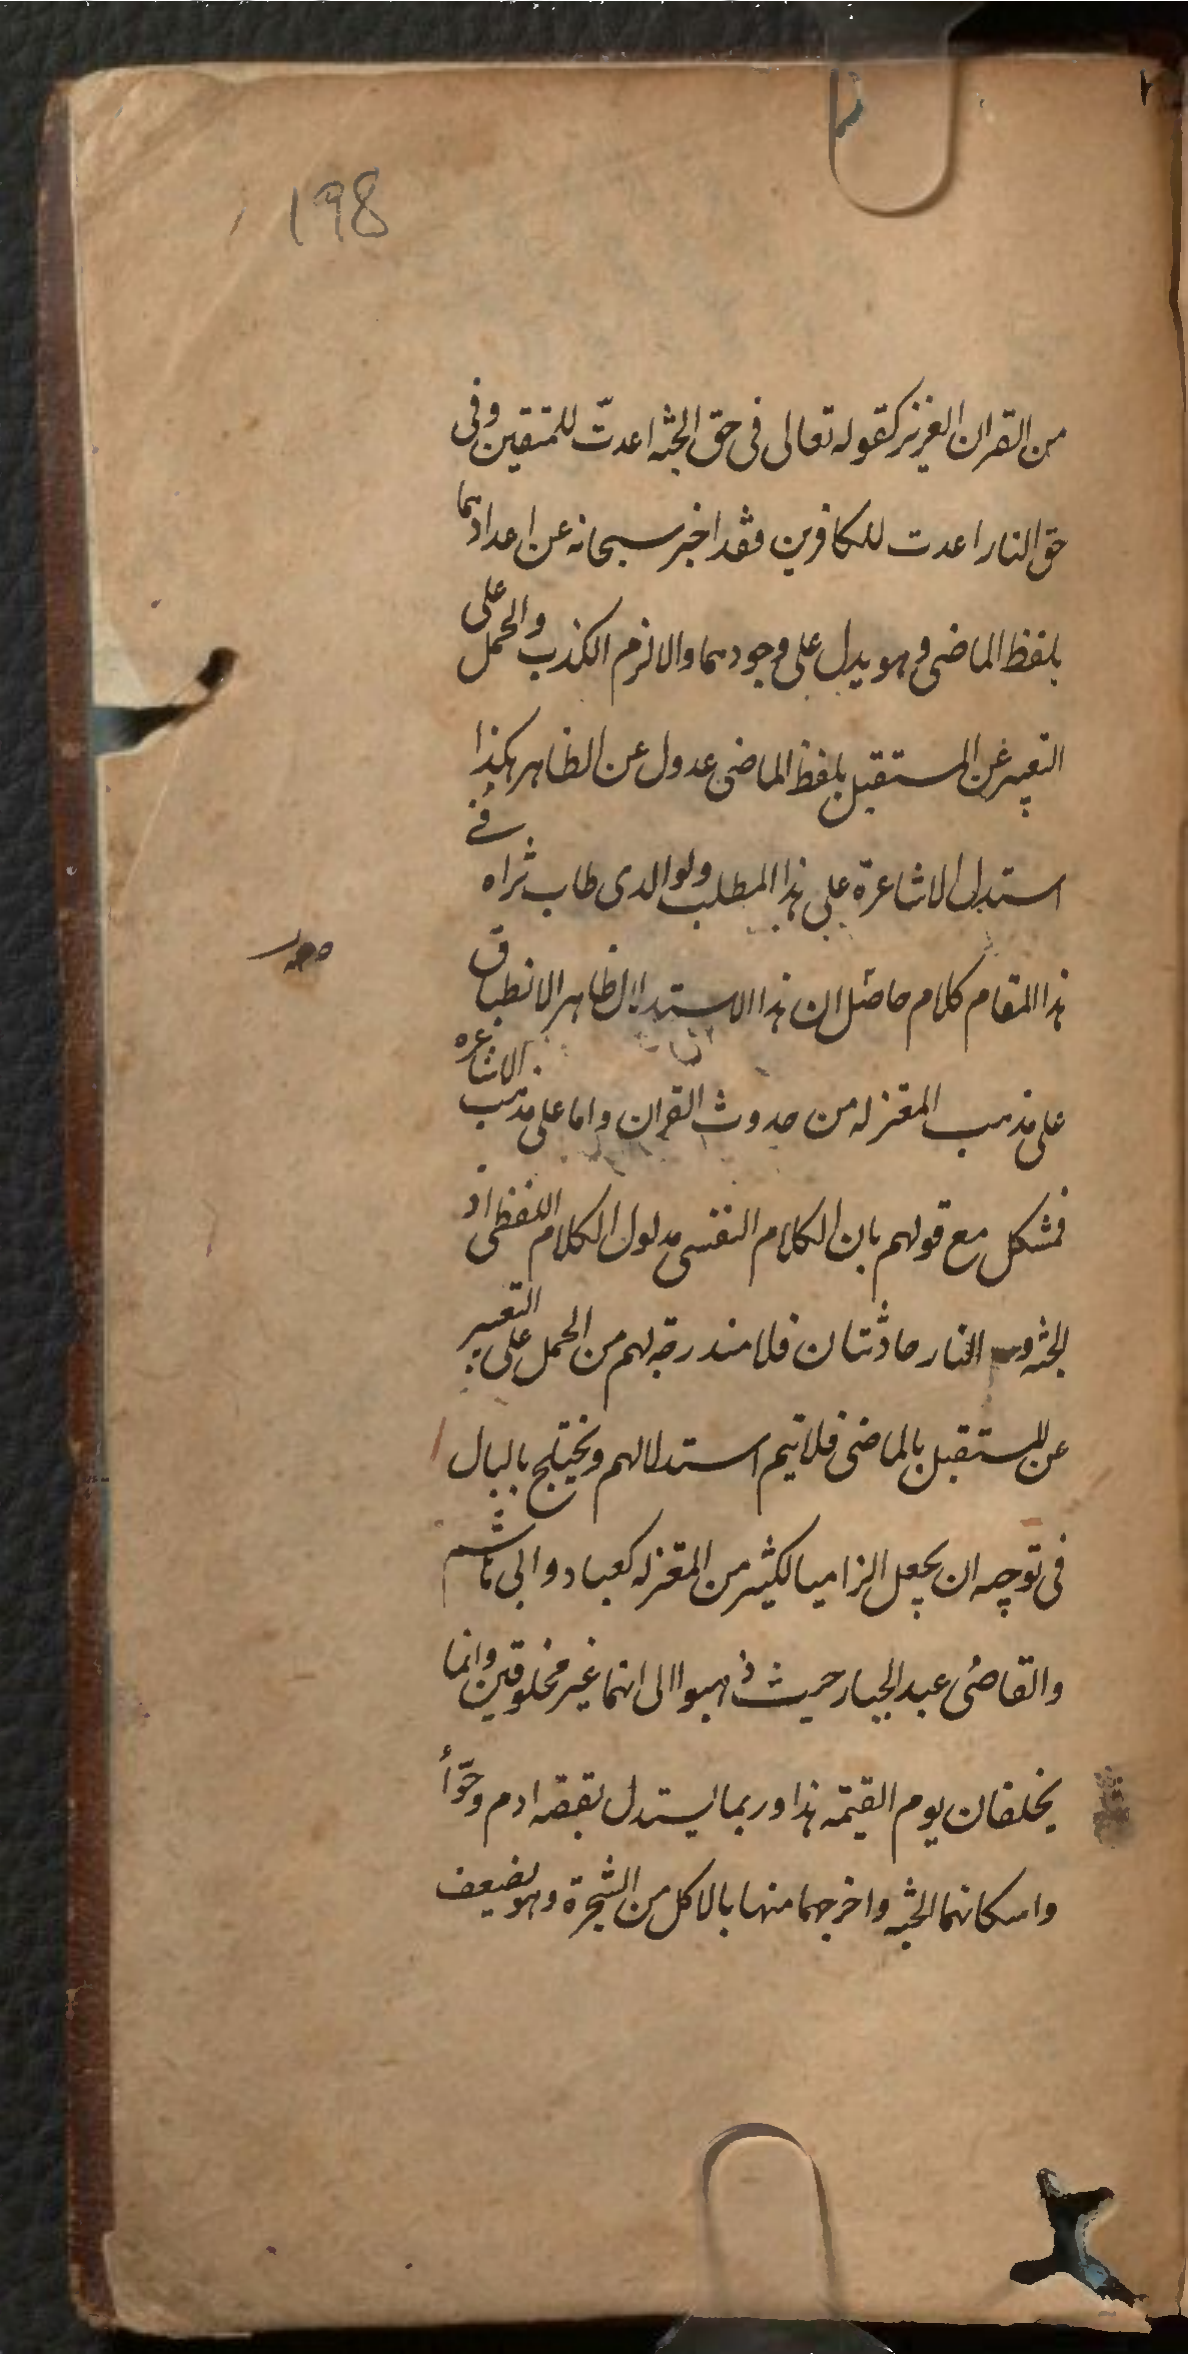 198
من القران العزيز كقوله تعالى فى حق الجنه اعدتّ للمتقين وفى
حق النار اعدت للكافرين فقد اخبر سبحانه عن اعدادهما
بلفظ الماضى وهو يدل على وجودهما والا لزم الكذب والحمل على
التعبير عن المستقبل بلفظ الماضى عدول عن الظاهر هكذا
استدل الاشاعرة على هذا المطلب ولوالدى طاب ثراه فى
هذا المقام كلام حاصله ان هذا الاستدلال ظاهر الانطباق
على مذهب المعتزله من حدوث القران واما على مذهب الاشاعره
فمشكل مع قولهم بان الكلام النفسى مدلول الكلام اللفظى اذ
الجنه و النار حادثتان فلا مندرجه لهم من الحمل على التعبير
عن المستقبل بالماضى فلا تيم استدلالهم ويختلج بالبال
فى توجيهه ان يجعل الزاميا لكثير من المعتزله كعباد وابى هاشم
والقاضى عبد الجبار حيث ذهبوا الى انهما غير مخلوقين وانما
يخلقان يوم القيمه هذا وربما يستدل بقصه ادم وحوّأ
واسكانهما الجنه واخرجهما منها بالاكل من الشجرة وهو ضعيف